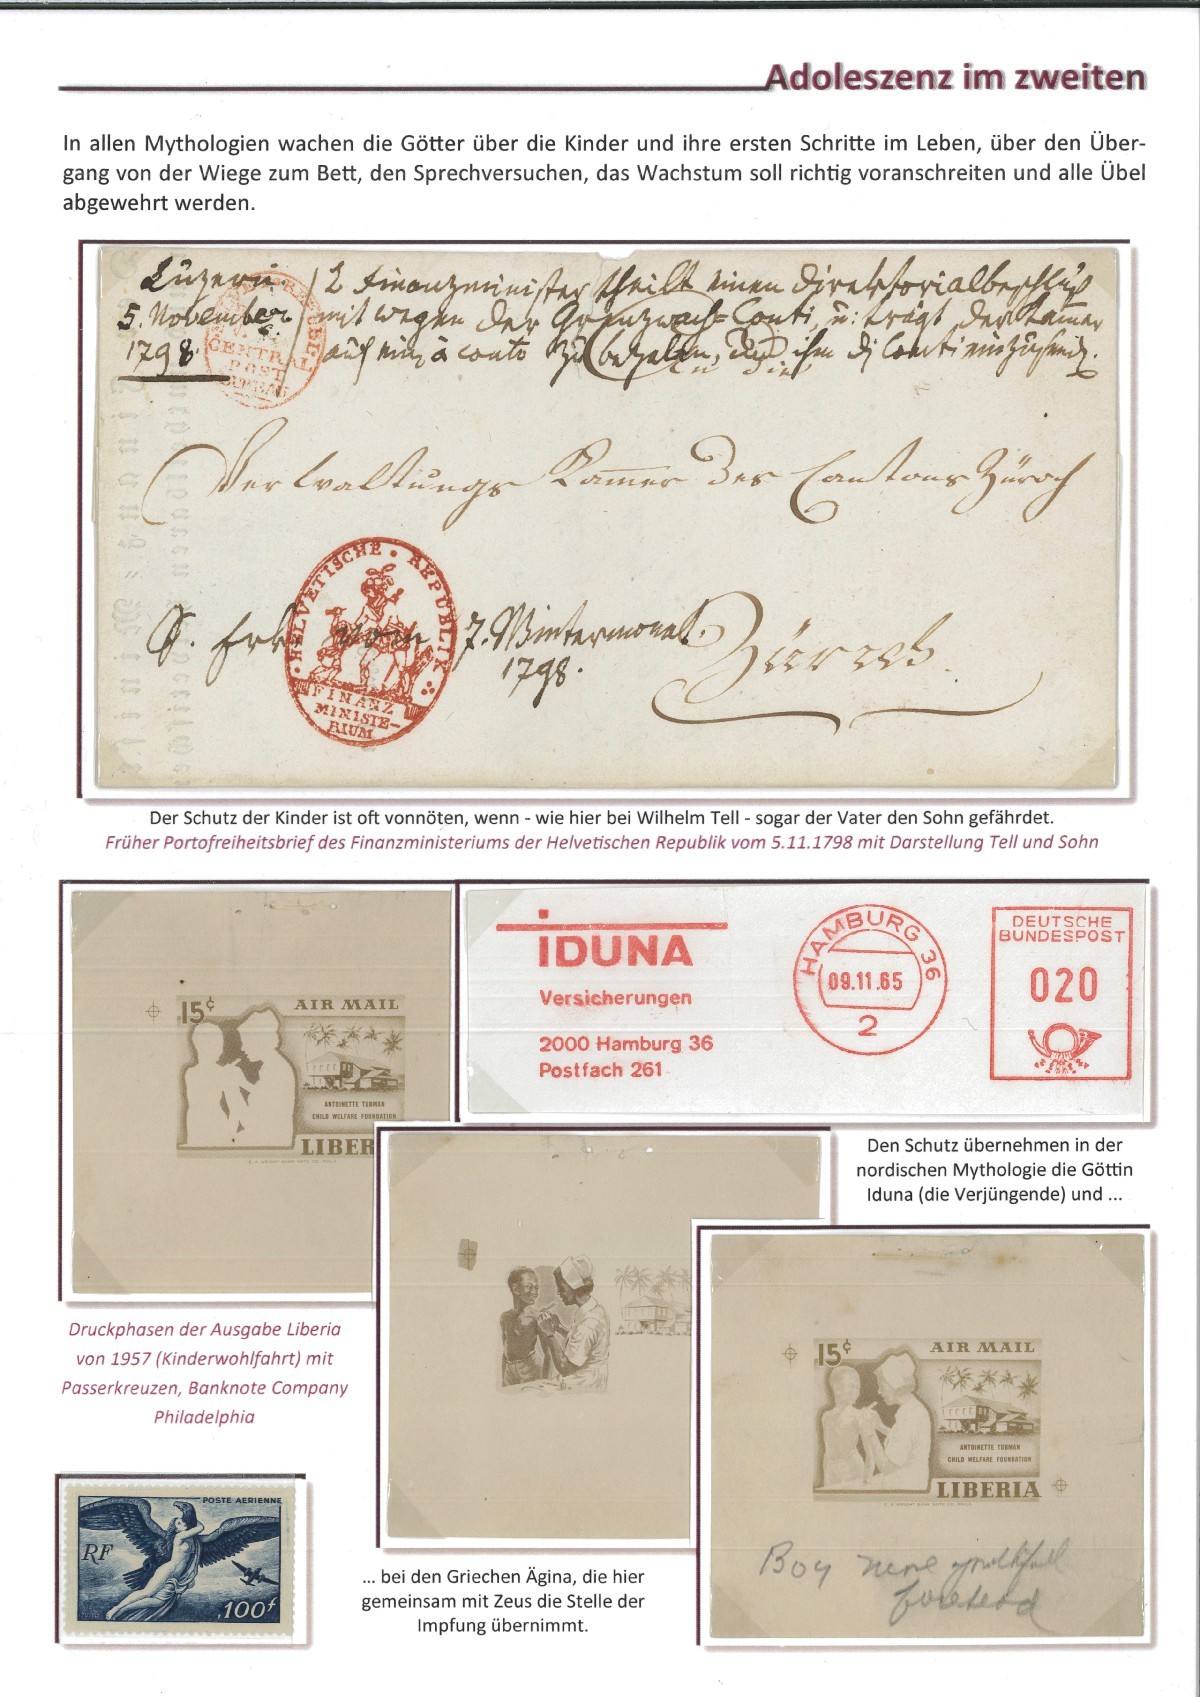 Adoleszenz im zweiten
In allen Mythologien wachen die Götter über die Kinder und ihre ersten Schritte im Leben, über den Über-
gang von der Wiege zum Bett, den Sprechversuchen, das Wachstum soll richtig voranschreiten und alle Übel
abgewehrt werden.
Luzern 2 Finanzminister theilt einen Direktorialbeschluß
5. November mit wegen der Grenzwach=Conti, u: trägt der Kamer
1798. auf à conto zu bezalen, ihm di Conti
CENTRAL
POST
Verwaltungs Kammer des Cantons Zürich
HELVETISCHE · REPUBLIK
FINANZ
MINISTE-
RIUM
vom 7. Wintermonat.
1798.
Zürich.
Der Schutz der Kinder ist oft vonnöten, wenn - wie hier bei Wilhelm Tell - sogar der Vater den Sohn gefährdet.
Früher Portofreiheitsbrief des Finanzministeriums der Helvetischen Republik vom 5.11.1798 mit Darstellung Tell und Sohn
15¢ AIR MAIL
ANTOINETTE TUBMAN
CHILD WELFARE FOUNDATION
LIBER
IDUNA
Versicherungen
2000 Hamburg 36
Postfach 261
HAMBURG 36
09.11.65
2
DEUTSCHE
BUNDESPOST
020
Den Schutz übernehmen in der
nordischen Mythologie die Göttin
Iduna (die Verjüngende) und ...
Druckphasen der Ausgabe Liberia
von 1957 (Kinderwohlfahrt) mit
Passerkreuzen, Banknote Company
Philadelphia
15¢ AIR MAIL
ANTOINETTE TUBMAN
CHILD WELFARE FOUNDATION
LIBERIA
Boy more youthful
forehead
POSTE AERIENNE
RF
100f
... bei den Griechen Ägina, die hier
gemeinsam mit Zeus die Stelle der
Impfung übernimmt.